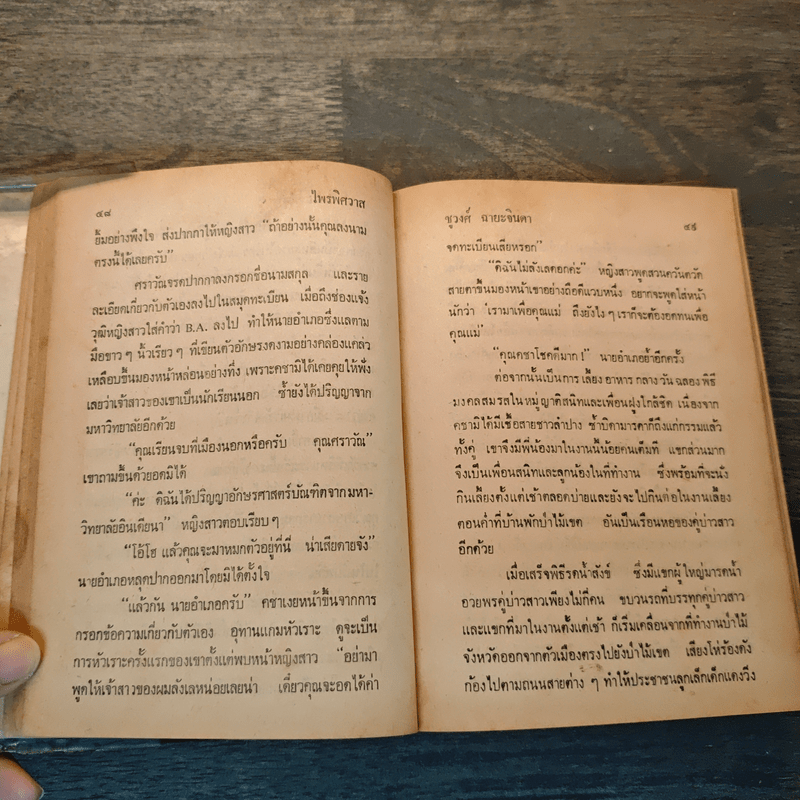 ๔๘
ไพรพิศวาส
ยิ้มอย่างพึงใจ ส่งปากกาให้หญิงสาว "ถ้าอย่างนั้นคุณลงนาม
ตรงนี้ได้เลยครับ"
ศราวัณจรดปากกาลงกรอกชื่อนามสกุล และราย
ละเอียดเกี่ยวกับตัวเองลงไปในสมุดทะเบียน เมื่อถึงช่องแจ้ง
วุฒิหญิงสาวใส่คำว่า B.A. ลงไป ทำให้นายอำเภอซึ่งแลตาม
มือขาว ๆ นิ้วเรียว ๆ ที่เขียนตัวอักษรงดงามอย่างคล่องแคล่ว
เหลือบขึ้นมองหน้าหล่อนอย่างทึ่ง เพราะคชามิได้เคยคุยให้ฟัง
เลยว่าเจ้าสาวของเขาเป็นนักเรียนนอก ซ้ำยังได้ปริญญาจาก
มหาวิทยาลัยอีกด้วย
"คุณเรียนจบที่เมืองนอกหรือครับ คุณศราวัณ"
เขาถามขึ้นด้วยอดมิได้
"ค่ะ ดิฉันได้ปริญญาอักษรศาสตร์บัณฑิตจากมหา-
วิทยาลัยอินเดียนา" หญิงสาวตอบเรียบ ๆ
"โอ้โฮ แล้วคุณจะมาหมกตัวอยู่ที่นี่ น่าเสียดายจัง"
นายอำเภอหลุดปากออกมาโดยมิได้ตั้งใจ
"แล้วกัน นายอำเภอครับ" คชาเงยหน้าขึ้นจากการ
กรอกข้อความเกี่ยวกับตัวเอง อุทานแกมหัวเราะ ดูจะเป็น
การหัวเราะครั้งแรกของเขาตั้งแต่พบหน้าหญิงสาว "อย่ามา
พูดให้เจ้าสาวของผมลังเลหน่อยเลยน่า เดี๋ยวคุณจะอดได้ค่า
ชูวงศ์ ฉายะจินดา
๔๙
จดทะเบียนเสียหรอก"
"ดิฉันไม่ลังเลดอกค่ะ" หญิงสาวพูดสวนควันควัด
สายตาขึ้นมองหน้าเขาอย่างถือดีแวบหนึ่ง อยากจะพูดใส่หน้า
นักว่า 'เรามาเพื่อคุณแม่ ถึงยังไง ๆ เราก็จะต้องอดทนเพื่อ
คุณแม่'
"คุณคชาโชคดีมาก !" นายอำเภอย้ำอีกครั้ง
ต่อจากนั้นเป็นการเลี้ยงอาหารกลางวันฉลองพิธี
มงคลสมรสในหมู่ญาติสนิทและเพื่อนฝูงใกล้ชิด เนื่องจาก
คชามิได้มีเชื้อสายชาวลำปาง ซ้ำบิดามารดาก็ถึงแก่กรรมแล้ว
ทั้งคู่ เขาจึงมีพี่น้องมาในงานนี้น้อยคนเต็มที แขกส่วนมาก
จึงเป็นเพื่อนสนิทและลูกน้องในที่ทำงาน ซึ่งพร้อมที่จะนั่ง
กินเลี้ยงตั้งแต่เช้าตลอดบ่ายและยังจะไปกินต่อในงานเลี้ยง
ตอนค่ำที่บ้านพักป่าไม้เขต อันเป็นเรือนหอของคู่บ่าวสาว
อีกด้วย
เมื่อเสร็จพิธีรดน้ำสังข์ ซึ่งมีแขกผู้ใหญ่มารดน้ำ
อวยพรคู่บ่าวสาวเพียงไม่กี่คน ขบวนรถที่บรรทุกคู่บ่าวสาว
และแขกที่มาในงานตั้งแต่เช้า ก็เริ่มเคลื่อนจากที่ทำงานป่าไม้
จังหวัดออกจากตัวเมืองตรงไปยังป่าไม้เขต เสียงโห่ร้องดัง
ก้องไปตามถนนสายต่าง ๆ ทำให้ประชาชนลูกเล็กเด็กแดงวิ่ง